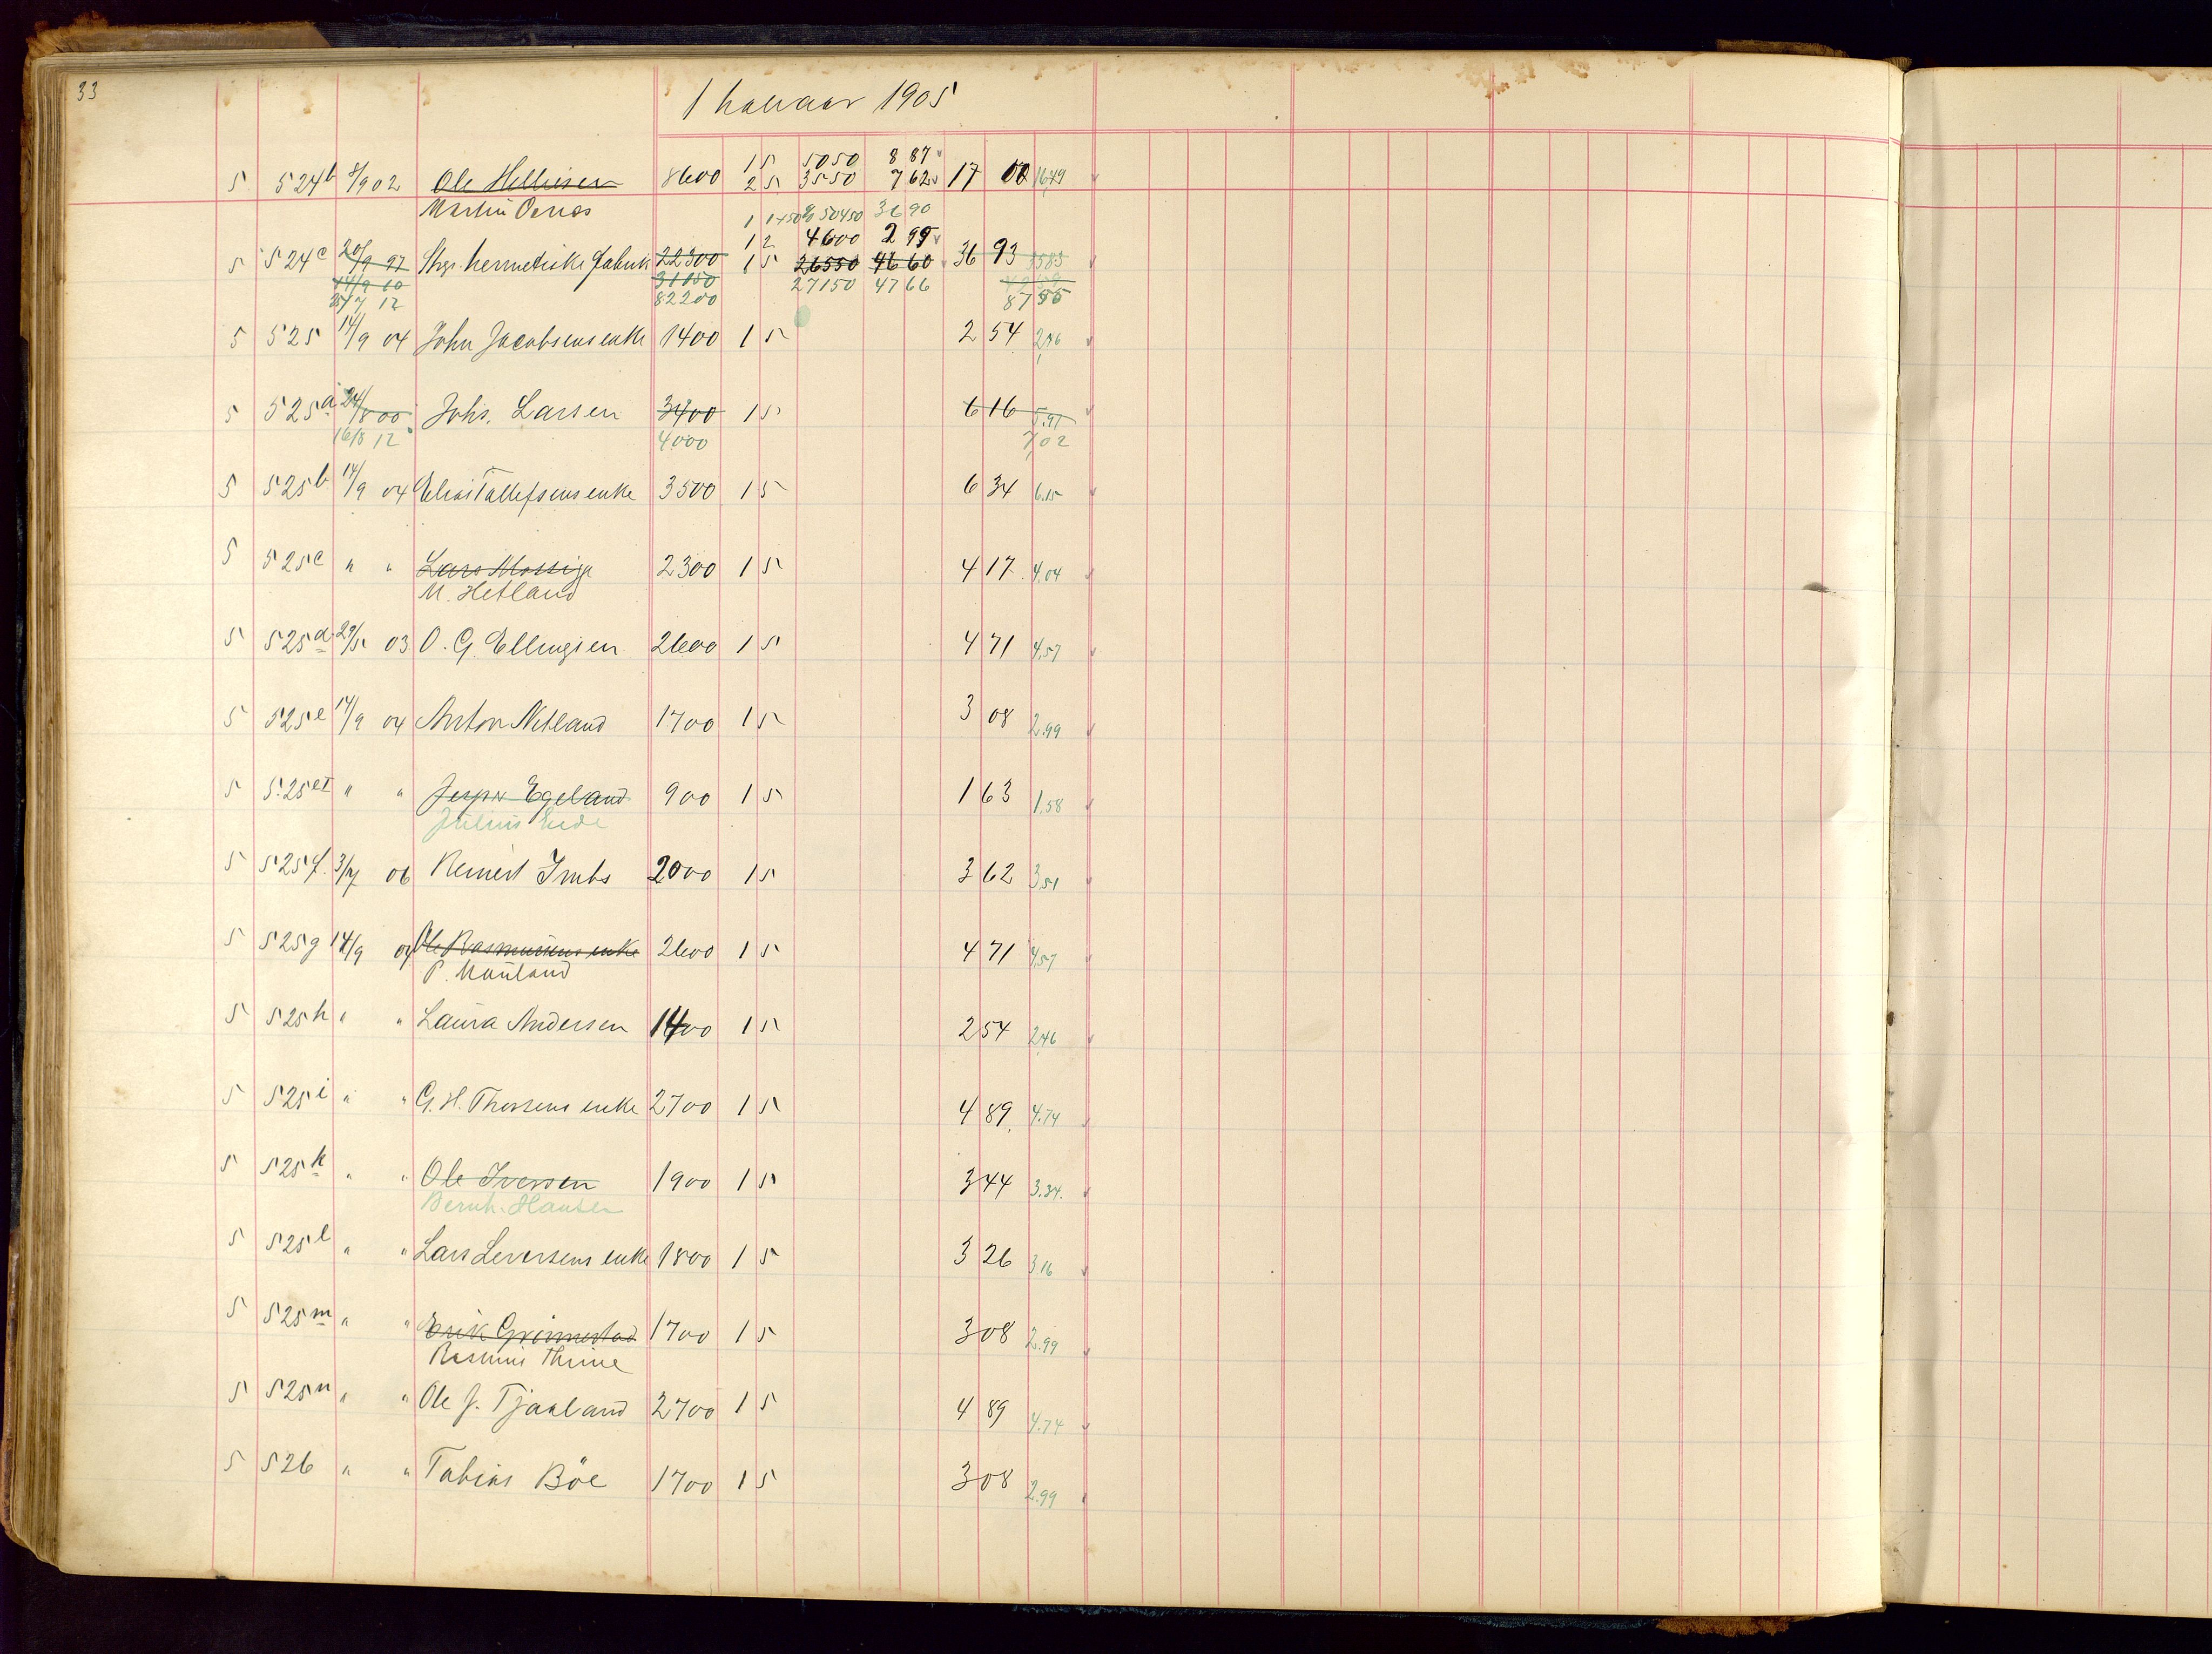 33
1 halvaar 1905
15 5050 8 87
5 524b 8/9 02 Ole Helliesen 8600 25 3550 7 62 17 00 1649
Martin 1 1 50450 36 90
12 4600 2 99
5 524c 20/9 97 Stvgr. hermetiske Fabrik 22300 15 26550 46 60 36 93 3583
14/9 10 31150 27150 47 66
25/7 12 82200 87 55
5 525 14/9 04 John Jacobsens enke 1400 1 5 2 54 2,46
5 525a 24/8 00 Johs. Larsen 3400 1 5 6 16 5.97
16/8 12 4000 7,02
5 525b 14/9 04 Elias Tallefsens enke 3500 1 5 6 34 6.15
5 525c " " Lars Mossige 2300 1 5 4 17 4,04
M. Hetland
5 525d 29/5 03 O. G. Ellingsen 2600 1 5 4 71 4,57
5 525e 14/9 04 Anton Netland 1700 1 5 3 08 2.99
5 525eI " " Jesper Egeland 900 1 5 1 63 1,58
Julius Eide
5 525f. 3/4 06 Reinert Imbs 2000 1 5 3 62 3,51
5 525g 14/9 04 Ole Rasmussens enke 2600 1 5 4 71 4,57
P. Mauland
5 525h " " Laura Andersen 1400 1 5 2 54 2,46
5 525i " " G. H. Thorsens enke 2700 1 5 4 89 4.74
5 525k " " Ole Iversen 1900 1 5 3 44 3.34.
Bernh. Hansen
5 525l " " Lars Leversens enke 1800 1 5 3 26 3,16
5 525m " " Erik Grimmestad 1700 1 5 3 08 2.99
Rasmus Thime
5 525n " " Ole J. Tjaaland 2700 1 5 4 89 4.74
5 526 " " Tobias Böe 1700 1 5 3 08 2.99